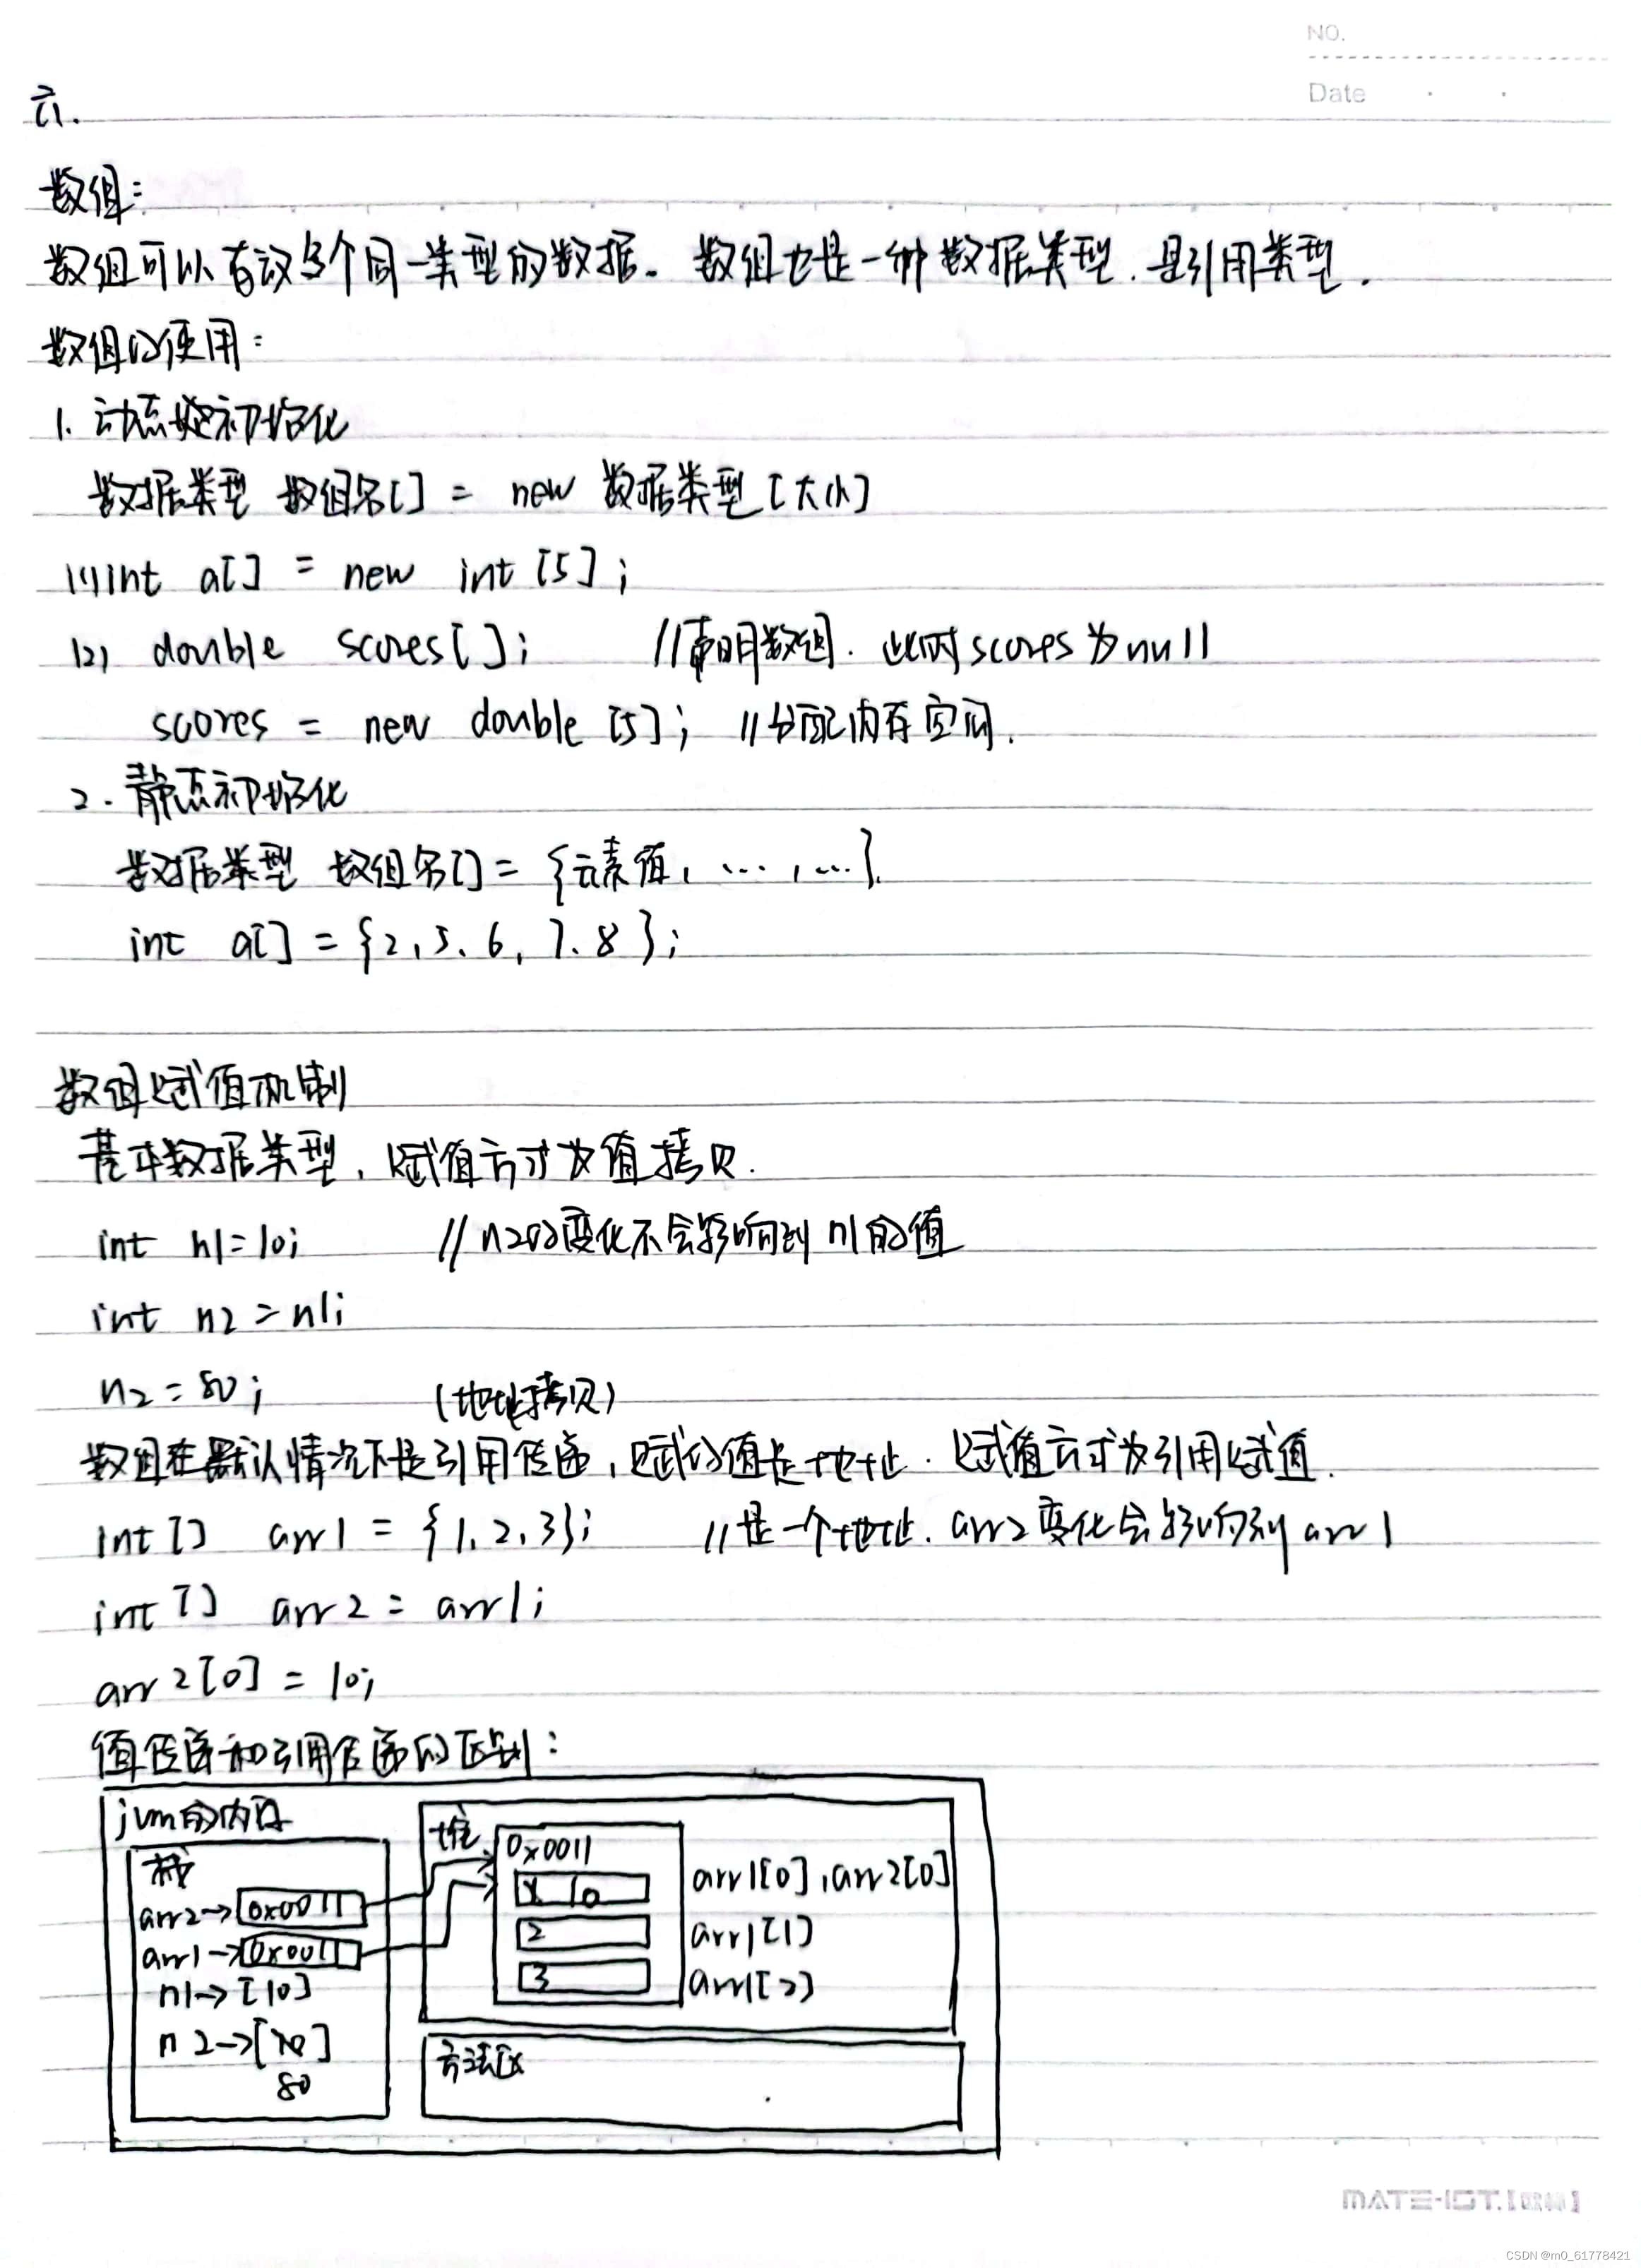 NO.
Date
六.
数组:
数组可以存放多个同一类型的数据。数组也是一种数据类型.是引用类型.
数组的使用:
1. 动态初始化
数据类型 数组名[] = new 数据类型[大小]
(1) int a[] = new int [5];
(2) double scores[]; //声明数组. 此时scores为null
scores = new double [5]; //分配内存空间.
2. 静态初始化
数据类型 数组名[] = {元素值, ..., ...}.
int a[] = {2, 5、6, 7、8 };
数组赋值机制
基本数据类型, 赋值方式为值拷贝.
int n1=10; // n2的变化不会影响到 n1的值
int n2 = n1;
n2 = 80;
(地址拷贝)
数组在默认情况下是引用传递, 赋的值是地址. 赋值方式为引用赋值.
int[] arr1 = {1, 2, 3}; //是一个地址. arr2变化会影响到arr1
int [] arr2 = arr1;
arr2[0] = 10;
值传递和引用传递的区别:
jvm的内存
栈
arr2→ 0x0011
arr1→ 0x0011
n1→[10]
n2→[10]
80
堆
0x0011
1 10
2
3
arr1[0], arr2[0]
arr1[1]
arr1[2]
方法区
MATE-IST.
CSDN @m0_61778421